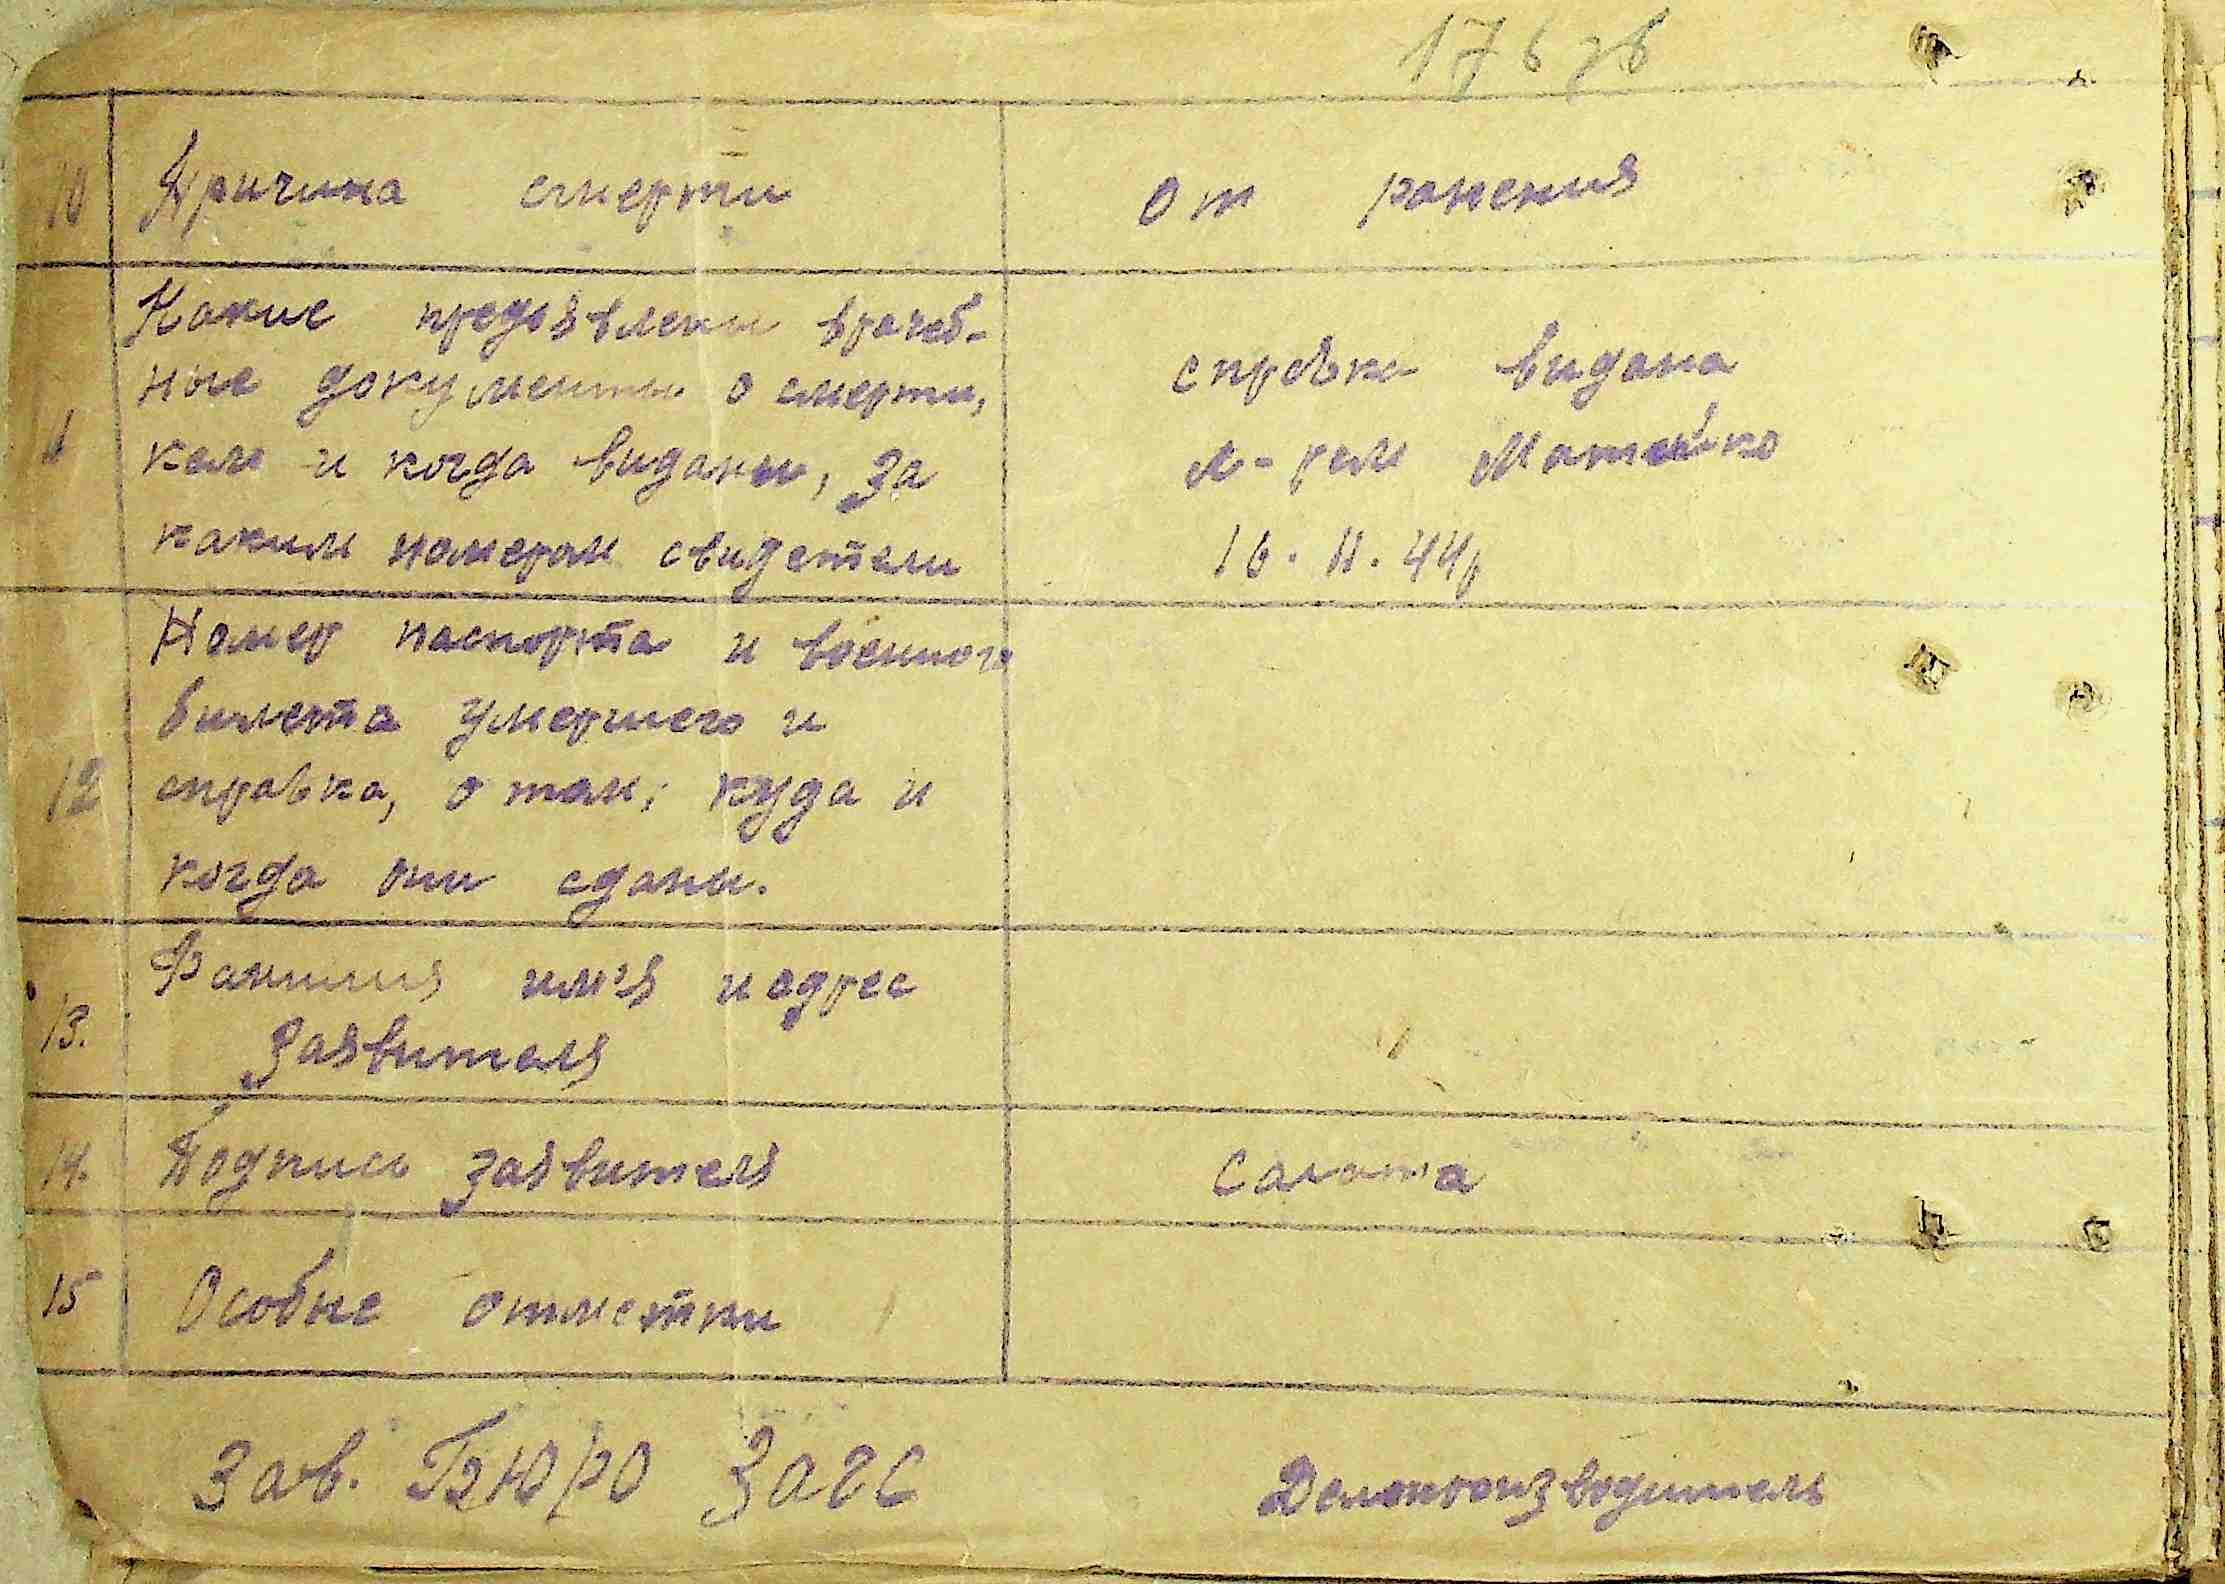 176 зв
10 Причина смерти от ранения
Какие предьявлены врачеб-
ные документы о смерти,
11 кем и когда видани, за
каким номером свидетели
справка видана
л-рем Матейко
16. II. 44р
Номер паспорта и военного
билета умершего и
12 справка, о том, куда и
когда они сданы.
Фамилия им'я и адрес
13. Заявителя
14. Подпись заявителя Салата
15 Особые отметки
Зав. БЮРО ЗАГС Делопроизводитель